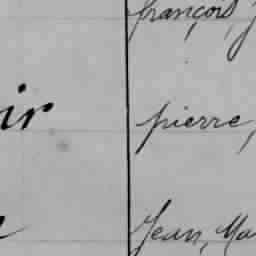 françois,
ir
pierre,
Jean, Ma